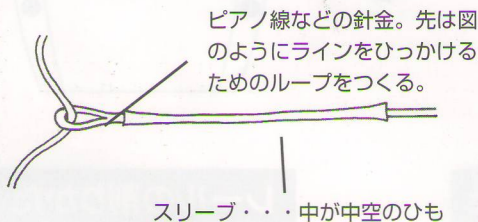 ピアノ線などの針金。先は図
のようにラインをひっかける
ためのループをつくる。
スリーブ・・・中が中空のひも